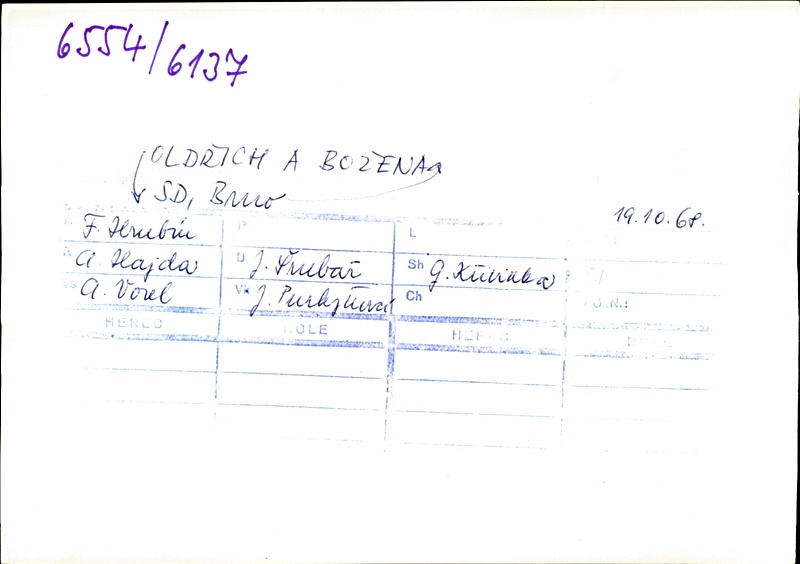 6554/6137
OLDŘICH A BOŽENA
SD, Brno
19.10.68.
F. Hrubín P L
R A. Hajda D J. Šrubař Sh G. Křivinka
Vs A. Vorel Vk J. Purkyňová Ch
HEREC ROLE HEREC